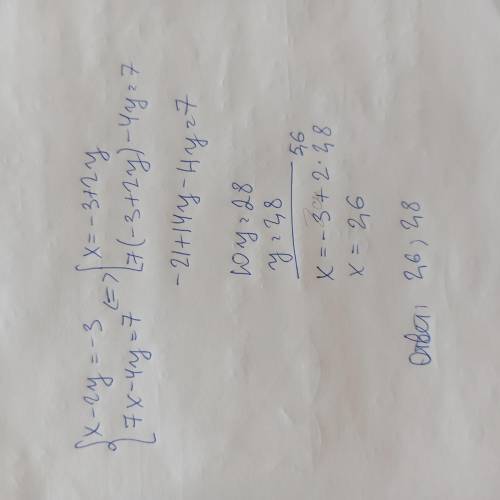 { x-2y=-3 <=> { x=-3+2y
{ 7x-4y=7 { 7(-3+2y)-4y=7
-21+14y-4y=7
10y=28
y=2,8
5,6
x=-3+2·2,8
x=2,6
Ответ: 2,6; 2,8